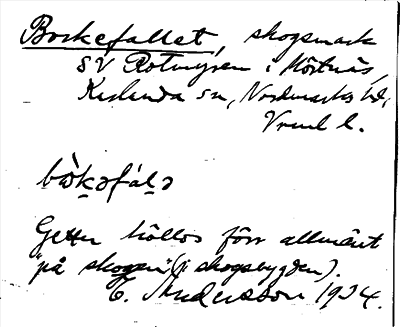 Bockefallet, skogsmark
SV Rotmyren i Mörtnäs,
Karlanda sn, Nordmarks hd,
Vrml l.
bòk̬əfál̬ə
Getter höllos förr allmänt
"på skogen" (i skogsbygden).
E. Andersson 1934.